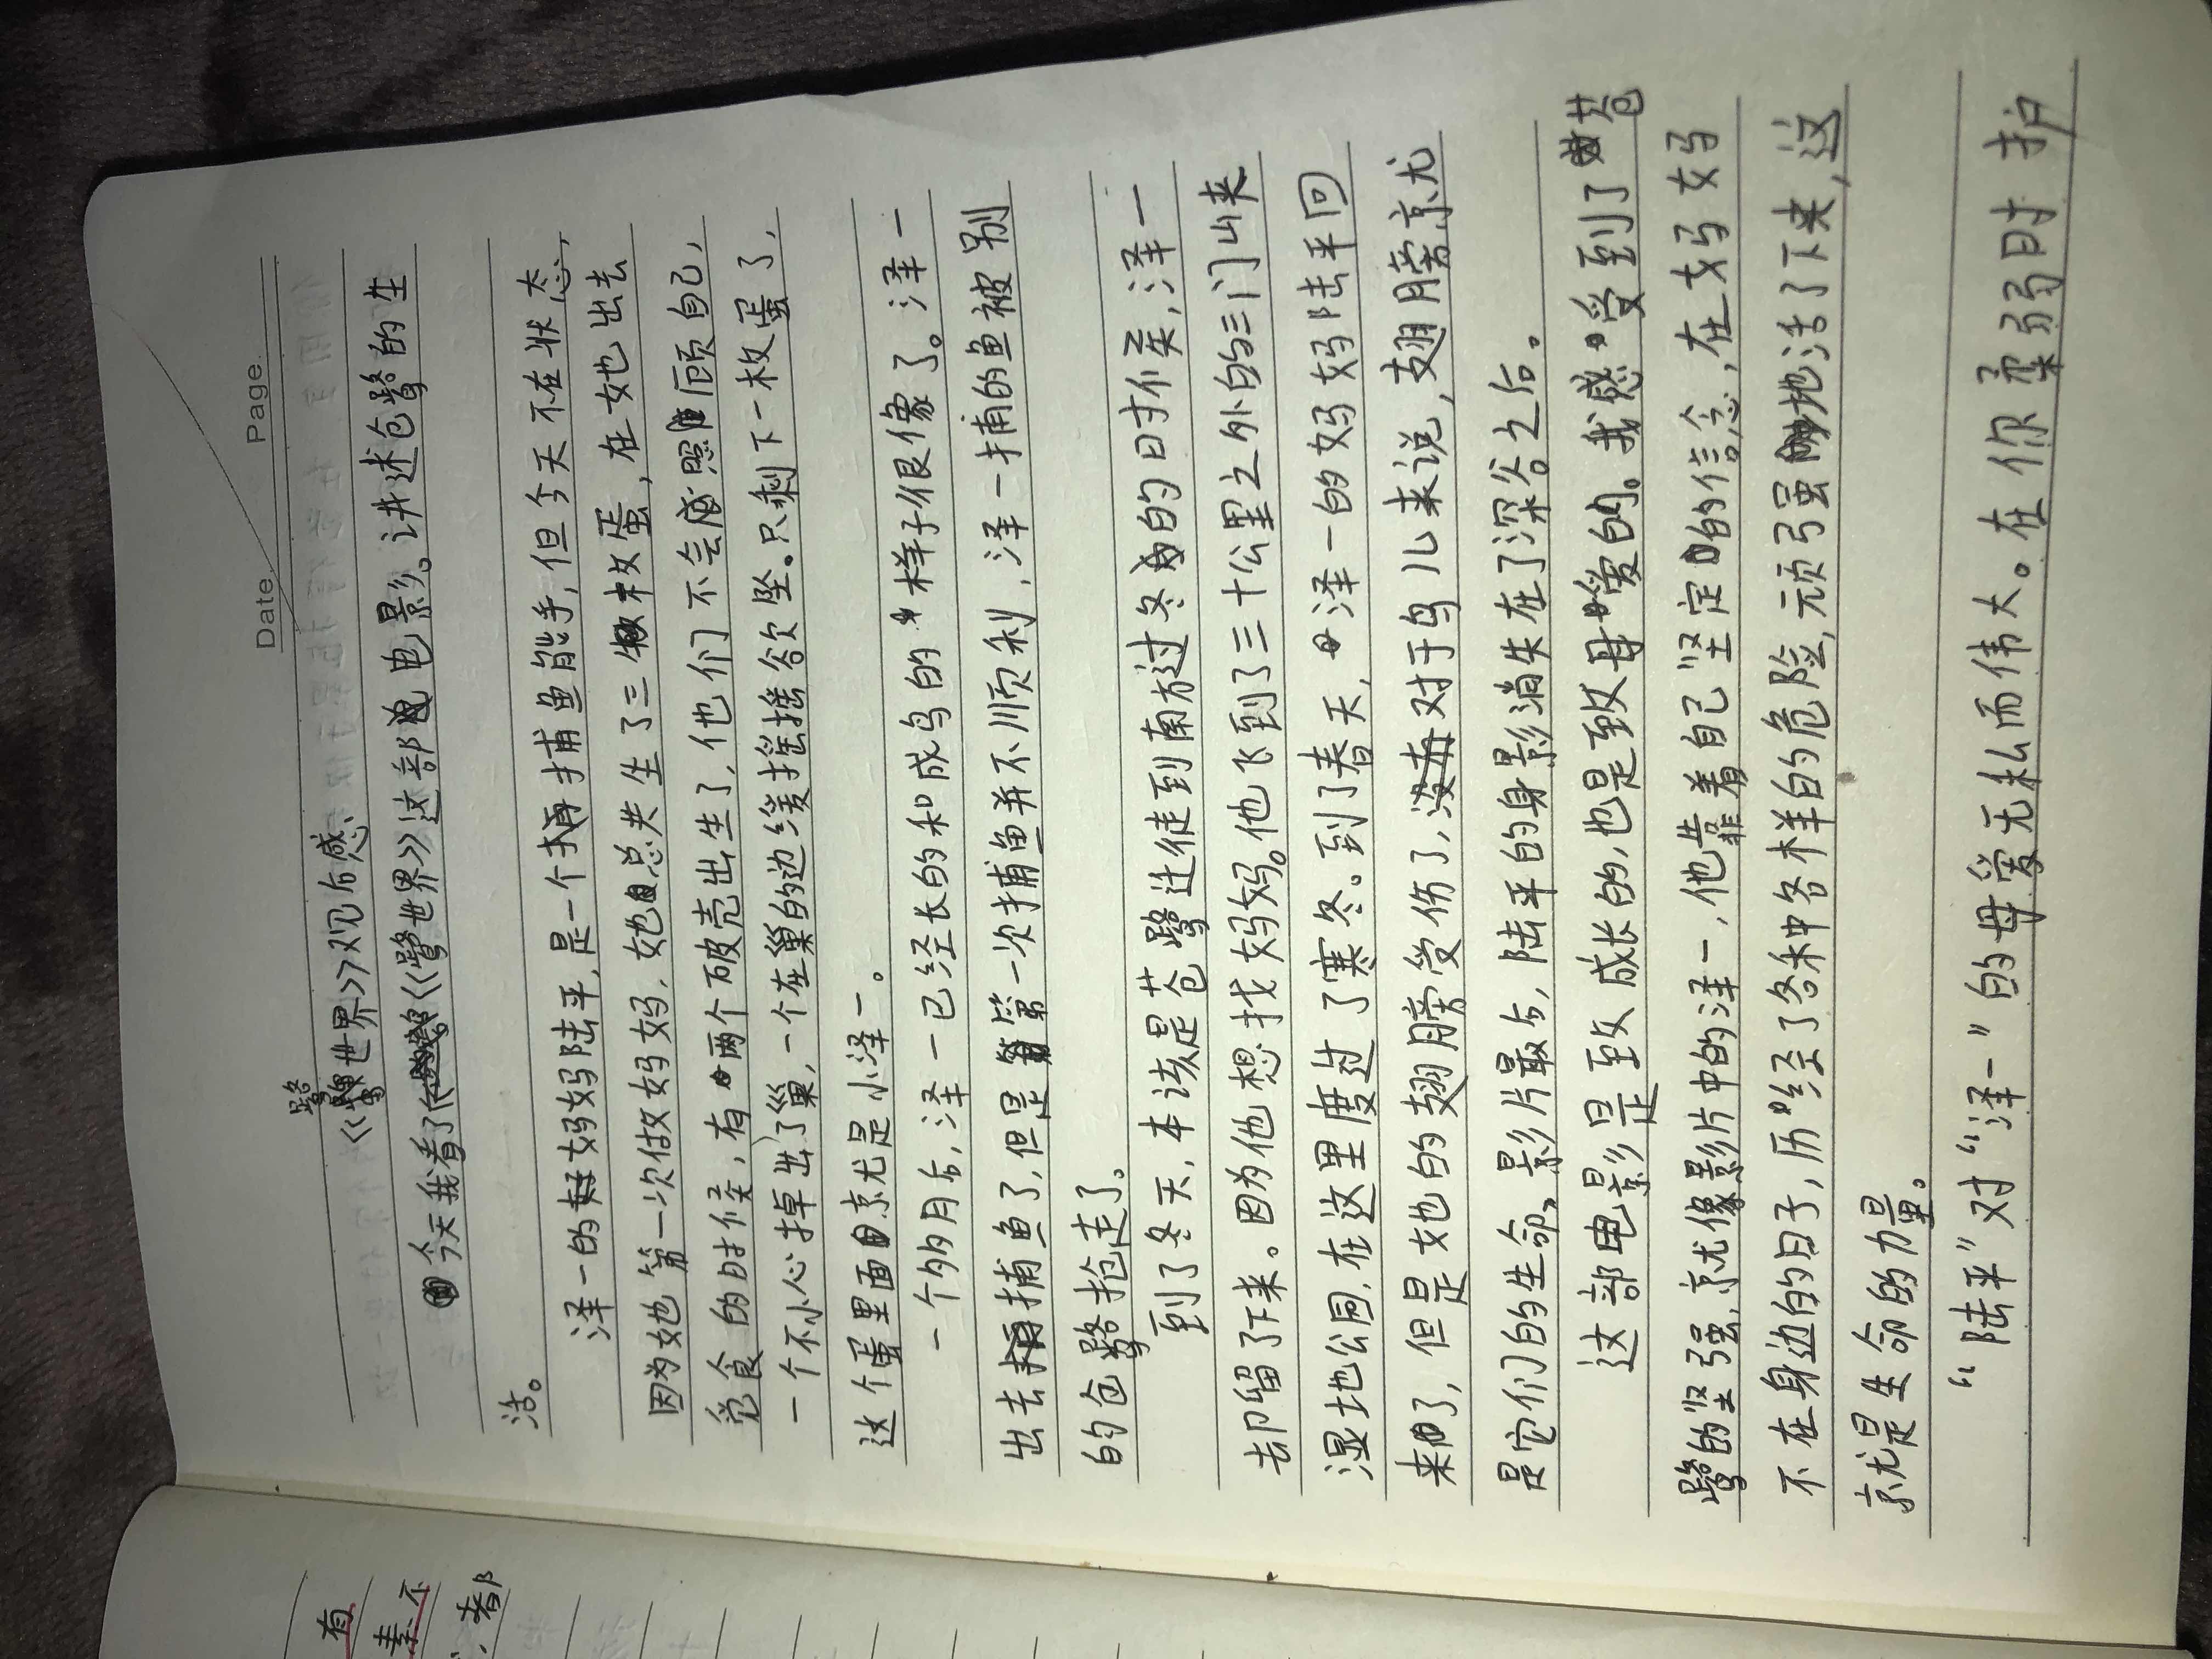 Date.
Page.
《鹭世界》观后感
今天我看了《鹭世界》这部电影。讲述仓鹭的生
活。
泽一的妈妈陆平,是一个捕鱼能手,但今天不在状态,
因为她第一次做妈妈,她总共生了三枚蛋,在她出去
觅食的时候,有两个破壳出生了,他们不会照顾自己,
一个不小心掉出了巢,一个在巢的边缘摇摇欲坠。只剩下一枚蛋了,
这个蛋里面就是小泽一。
一个多月后,泽一已经长的和成鸟的样子很像了。泽一
出去捕鱼了,但是第一次捕鱼并不顺利,泽一捕的鱼被别
的仓鹭抢走了。
到了冬天,本该是苍鹭迁徒到南方过冬的时候,泽一
却留了下来。因为他想找妈妈。他飞到了三十公里之外的三门山来
湿地公园,在这里度过了寒冬。到了春天,泽一的妈妈陆平回
来了,但是她的翅膀受伤了,对于鸟儿来说,翅膀就
是它们的生命,影片最后,陆平的身影消失在了深谷之后。
这部电影是致成长的,也是致母爱的。我感受到了苍
鹭的坚强,就像影片中的泽一,他靠着自己坚定的信念,在妈妈
不在身边的日子,历经了各种各样的危险,顽强地活了下来,这
就是生命的力量。
“陆平”对“泽一”的母爱无私而伟大。在你柔弱时护
有
素.不
、都